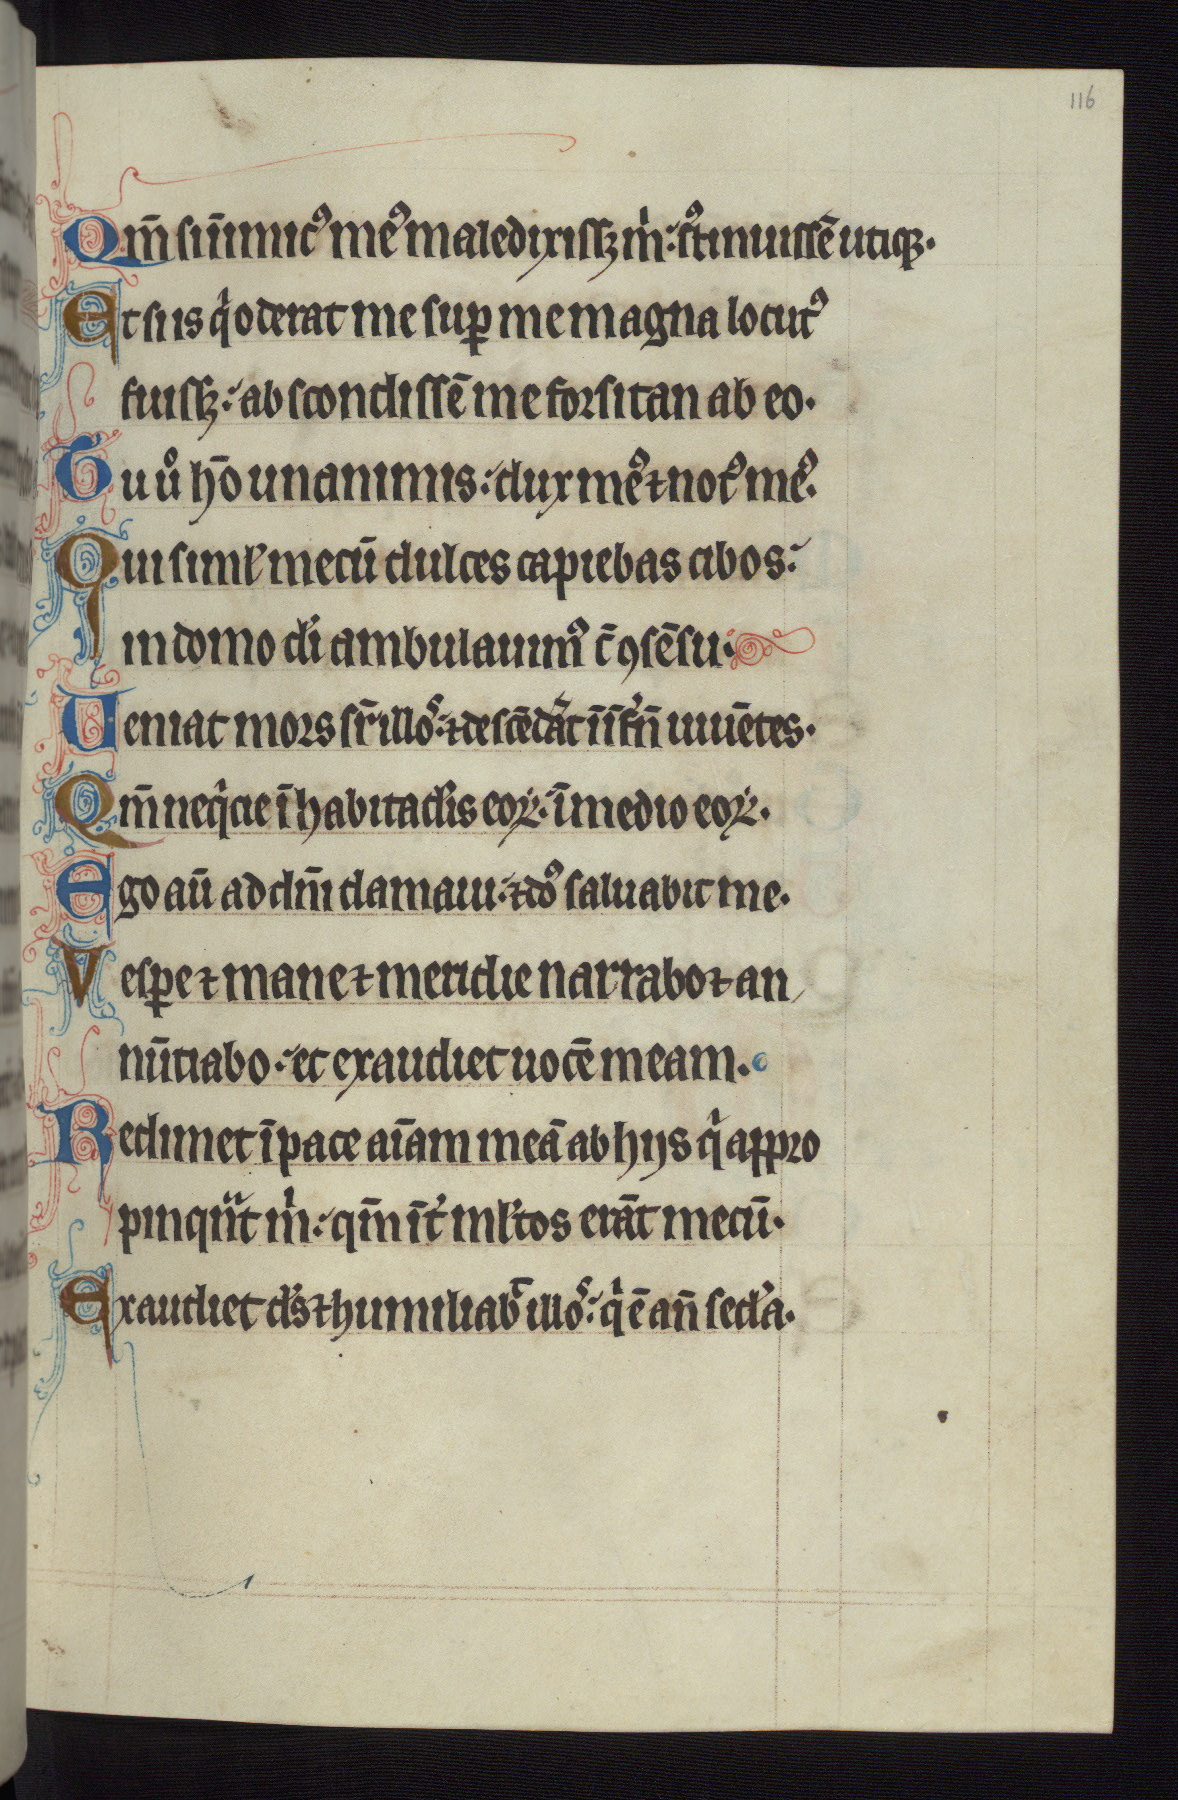 116
Qm̄ si inimicꝰ meꝰ maledixissꝫ m̍: sꝰtinuissē utiqꝫ.
Et si is q̍ oderat me suꝑ me magna locutꝰ
fuissꝫ: abscondissē me forsitan ab eo.
Tu uͦ hō unanimis: dux meꝰ ⁊ notꝰ meꝰ.
Qui siml̍ mecū dulces capiebas cibos:
in domo di̍ ambulauimꝰ c̄ ꝯsēsu.
Ueniat mors sr̄ illoˢ: ⁊ descēdāt ī īf̍n̄ uiuētes.
Qm̄ neq̍cie ī habitacl̍is eoꝝ: ī medio eoꝝ.
Ego aū ad dn̄m clamaui: ⁊ dn̄s saluabit me.
Vesꝑe ⁊ mane ⁊ meridie narrabo ⁊ an
nūtiabo: et exaudiet uocē meam.
Redimet ī pace aīam meā ab hijs q̍ appro
pinqͣnt m̍: qm̄ īt̍ ml̍tos erāt mecū.
Exaudiet ds̄ ⁊ humiliab̍ illoˢ: q̍ ē an̄ secl̍a.